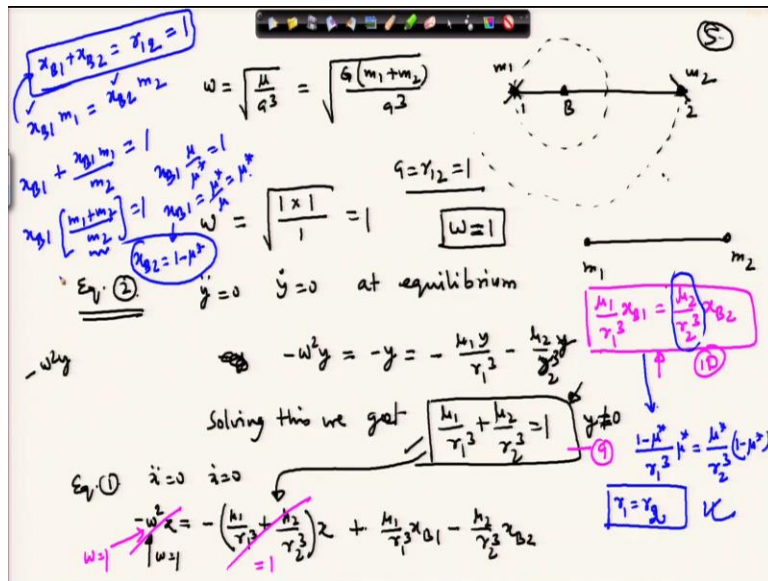 x_B1 + x_B2 = r_12 = 1
x_B1 m_1 = x_B2 m_2
x_B1 + x_B1 m_1 / m_2 = 1
x_B1 [ (m_1 + m_2) / m_2 ] = 1
x_B1 μ / μ* = 1
x_B1 = μ* / μ = μ*
x_B2 = 1 - μ*
ω = √(μ / a³) = √(G (m_1 + m_2) / a³)
5
m_1
m_2
1
B
2
a = r_12 = 1
ω = √(1 × 1 / 1) = 1
ω = 1
m_1
m_2
Eq. ② ÿ = 0 ẏ = 0 at equilibrium
μ_1 / r_1³ x_B1 = μ_2 / r_2³ x_B2
10
-ω²y
-ω²y = -y = - μ_1 y / r_1³ - μ_2 y / r_2³
Solving this we get μ_1 / r_1³ + μ_2 / r_2³ = 1 y ≠ 0
9
(1-μ*) / r_1³ μ* = μ* / r_2³ (1-μ*)
r_1 = r_2
Eq. ① ẍ = 0 ẋ = 0
-ω² x = - (μ_1 / r_1³ + μ_2 / r_2³) x + μ_1 / r_1³ x_B1 - μ_2 / r_2³ x_B2
ω = 1
ω = 1
= 1